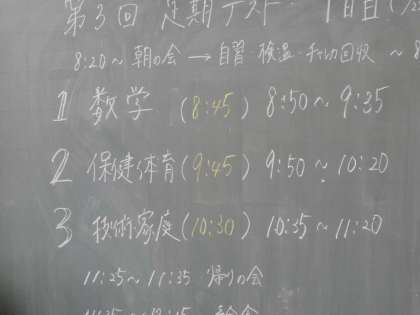 第3回 定期テスト 1日目
8:20～ 朝の会 → 自習・検温・チェック回収 ～8
1 数学 (8:45) 8:50～9:35
2 保健体育 (9:45) 9:50～10:20
3 技術家庭 (10:30) 10:35～11:20
11:25～11:35 帰りの会